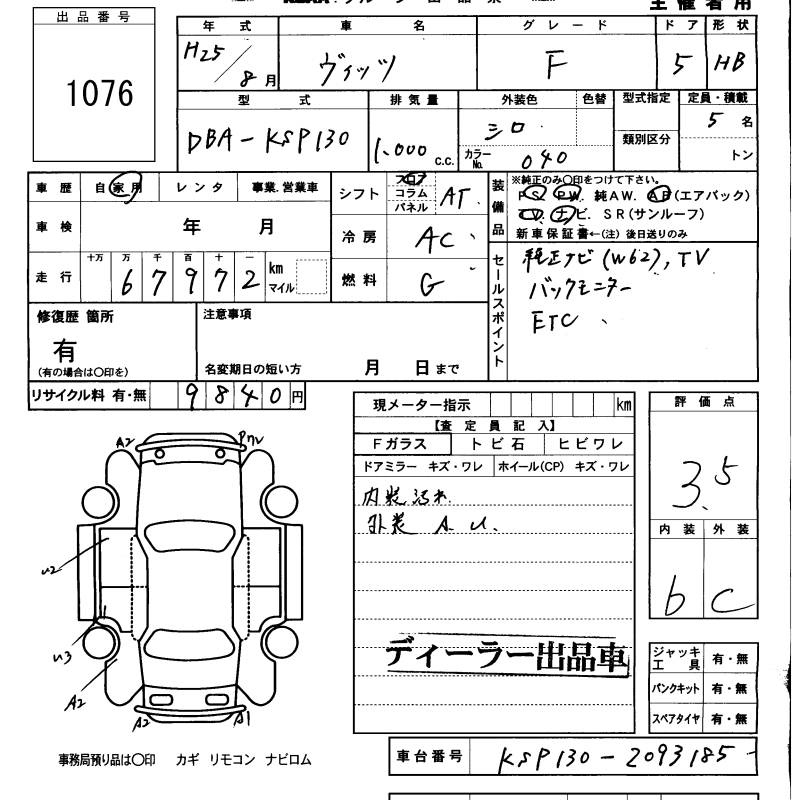 主催者用
出品番号
1076
年式 車名 グレード ドア 形状
H25/8月 ヴィッツ F 5 HB
型式 排気量 外装色 色替 型式指定 定員・積載
DBA-KSP130 1,000 C.C. シロ 5名
カラーNo. 040 類別区分 トン
車歴 自家用 レンタ 事業.営業車
シフト フロア コラム パネル AT
装備品
※純正のみ○印をつけて下さい。
PS. PW. 純AW. AB(エアバック)
TV. ナビ. SR(サンルーフ)
新車保証書←(注)後日送りのみ
車検 年 月
冷房 AC
走行 十万 万 千 百 十 一
67972 km マイル
燃料 G
セールスポイント
純正ナビ(W62), TV
バックモニター
ETC
修復歴 箇所
有
(有の場合は○印を)
注意事項
名変期日の短い方 月 日まで
リサイクル料 有・無 9840円
現メーター指示 km
【査定員記入】
Fガラス トビ石 ヒビワレ
ドアミラー キズ・ワレ ホイール(CP) キズ・ワレ
内装汚れ
外装 A. U.
ディーラー出品車
評価点
3.5
内装 外装
b C
ジャッキ工具 有・無
パンクキット 有・無
スペアタイヤ 有・無
A2
U2
U3
A2
A2
A1
事務局預り品は○印 カギ リモコン ナビロム
車台番号 KSP130-2093185